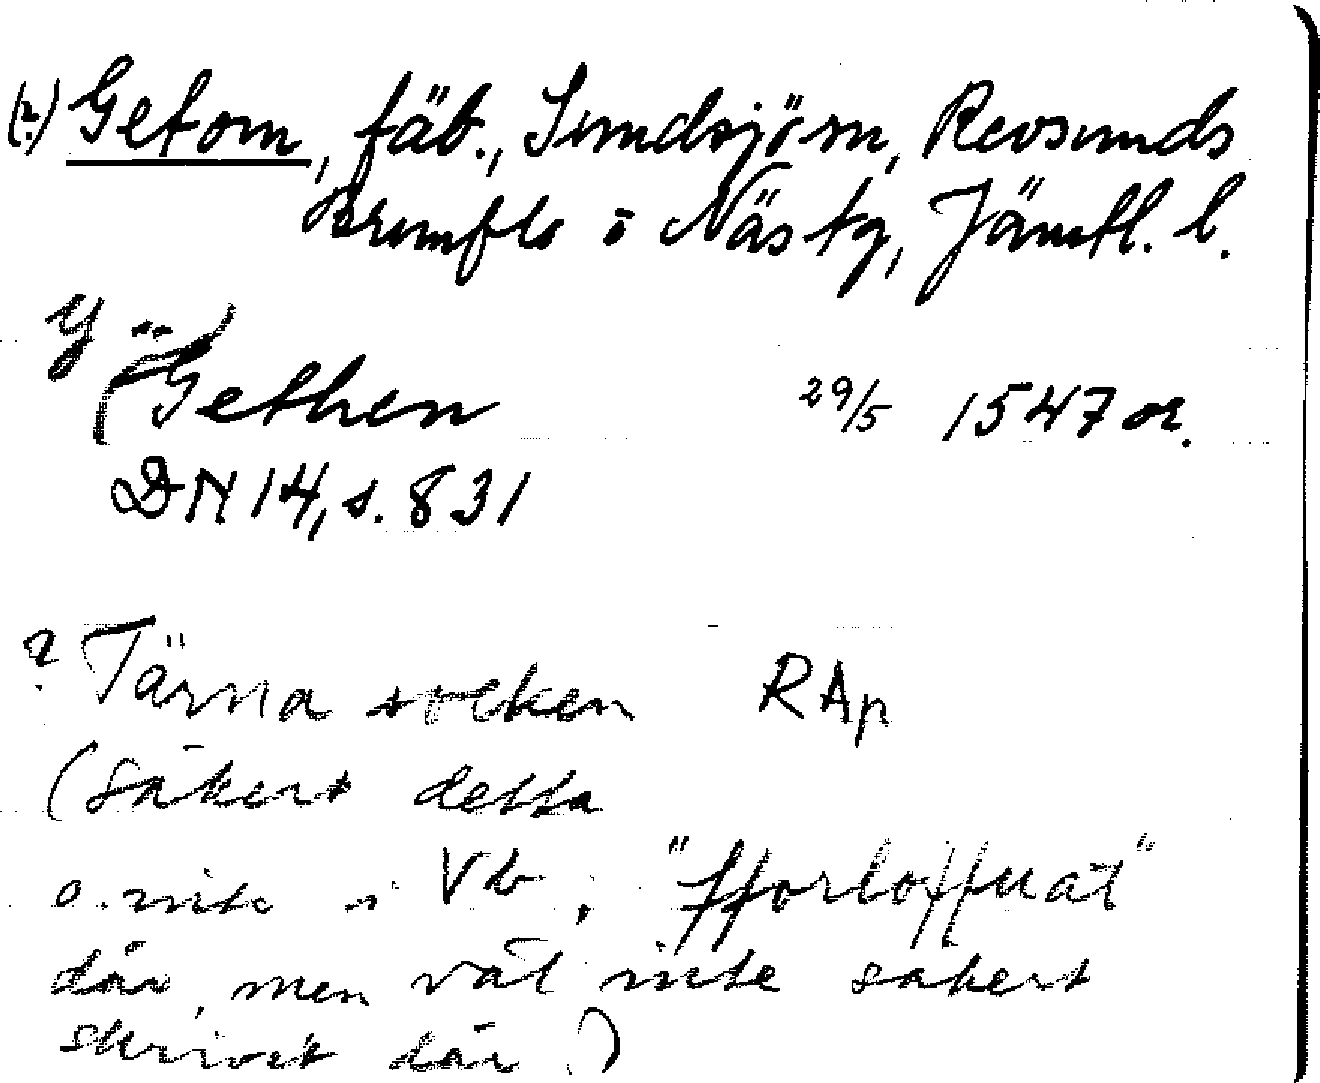 (?) Getom, fäb., Sundsjö sn, Revsunds
Brunflo o Näs tg, Jämtl. l.
y Gethen 29/5 1547 or.
DN 14, s. 831
? Tärna socken RAp
(säkert detta
o. inte i Vb, "fforloffuat"
där, men väl inte säkert
skrivet där)